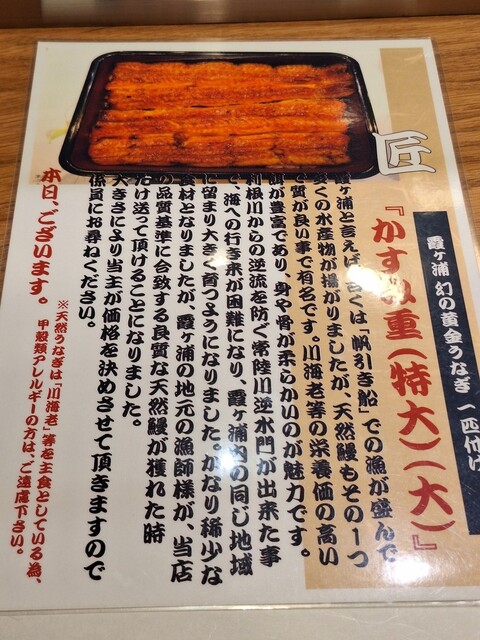 霞ヶ浦 幻の黄金うなぎ 一匹付け
匠
『かすみ重(特大)(大)』
霞ヶ浦と言えば、古くは「帆引き船」での漁が盛んで
多くの水産物が揚がりましたが、天然鰻もその1つ
で質が良い事で有名です。川海老等の栄養価の高い
餌が豊富であり、身や骨が柔らかいのが魅力です。
利根川からの逆流を防ぐ常陸川逆水門が出来た事
で、海への行き来が困難になり、霞ヶ浦内の同じ地域
に留まり大きく育つようになりました。かなり稀少な
食材となりましたが、霞ヶ浦の地元の漁師様が、当店
の品質基準に合致する良質な天然鰻が獲れた時
だけ送って頂けることになりました。
大きさにより当主が価格を決めさせて頂きますので
係員にお尋ねください。
本日、ございます。
※天然うなぎは「川海老」等を主食としている為、
甲殻類アレルギーの方は、ご遠慮下さい。